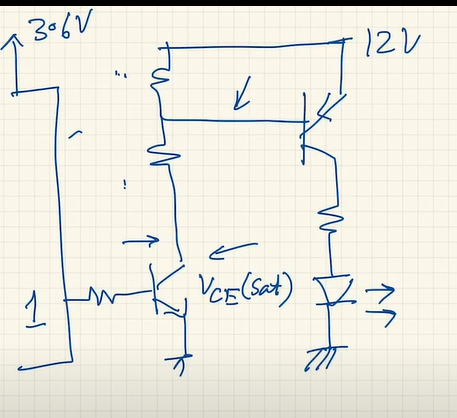 3.6V
12V
1
VCE(sat)